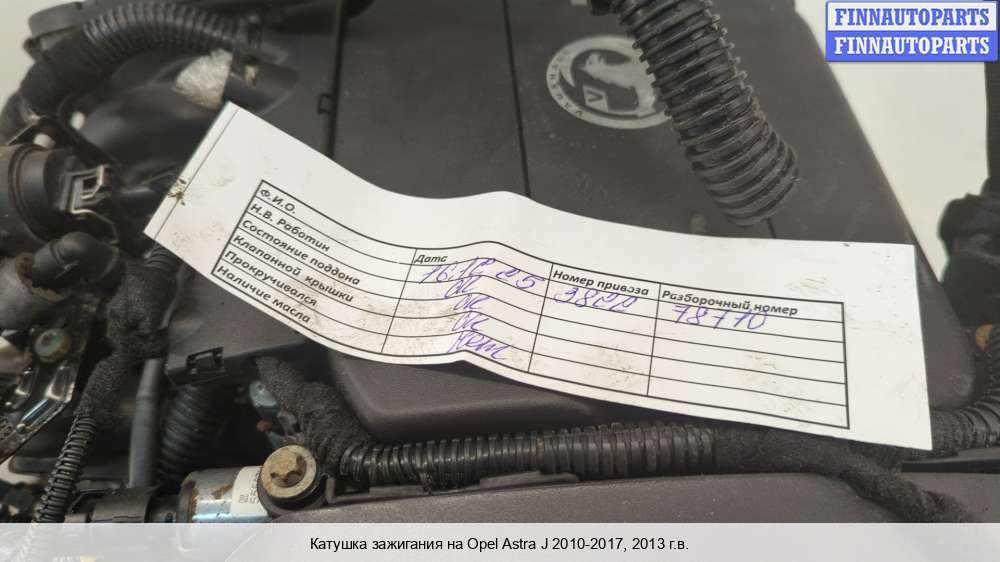 FINNAUTOPARTS
FINNAUTOPARTS
VAUXHALL
Ф.И.О. Дата Номер привоза Разборочный номер
Н.В. Работин 78770
Состояние поддона ОК
Клапанной крышки ОК
Прокручивался ОК
Наличие масла Нет
Катушка зажигания на Opel Astra J 2010-2017, 2013 г.в.